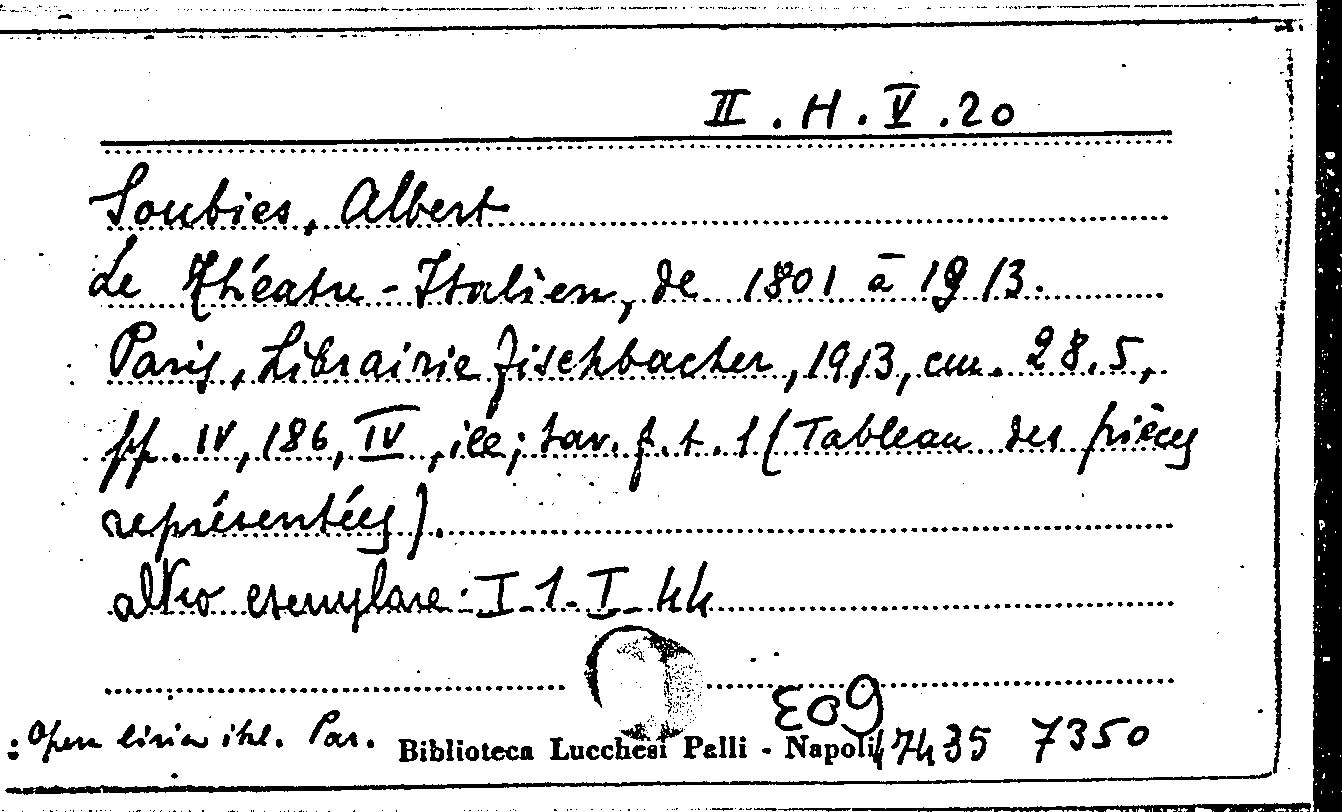 II.H.V.20
Soubies, Albert
Le Théatre-Italien, de 1801 à 1913.
Paris, Librairie Fischbacher, 1913, cm. 28.5,
pp. IV, 186, IV, ill; tav. f.t. 1 (Tableau des pièces
représentées).
altro esemplare: I-1-I-44
: Opera lirica ital. Par.
Biblioteca Lucchesi Palli - Napoli
7350